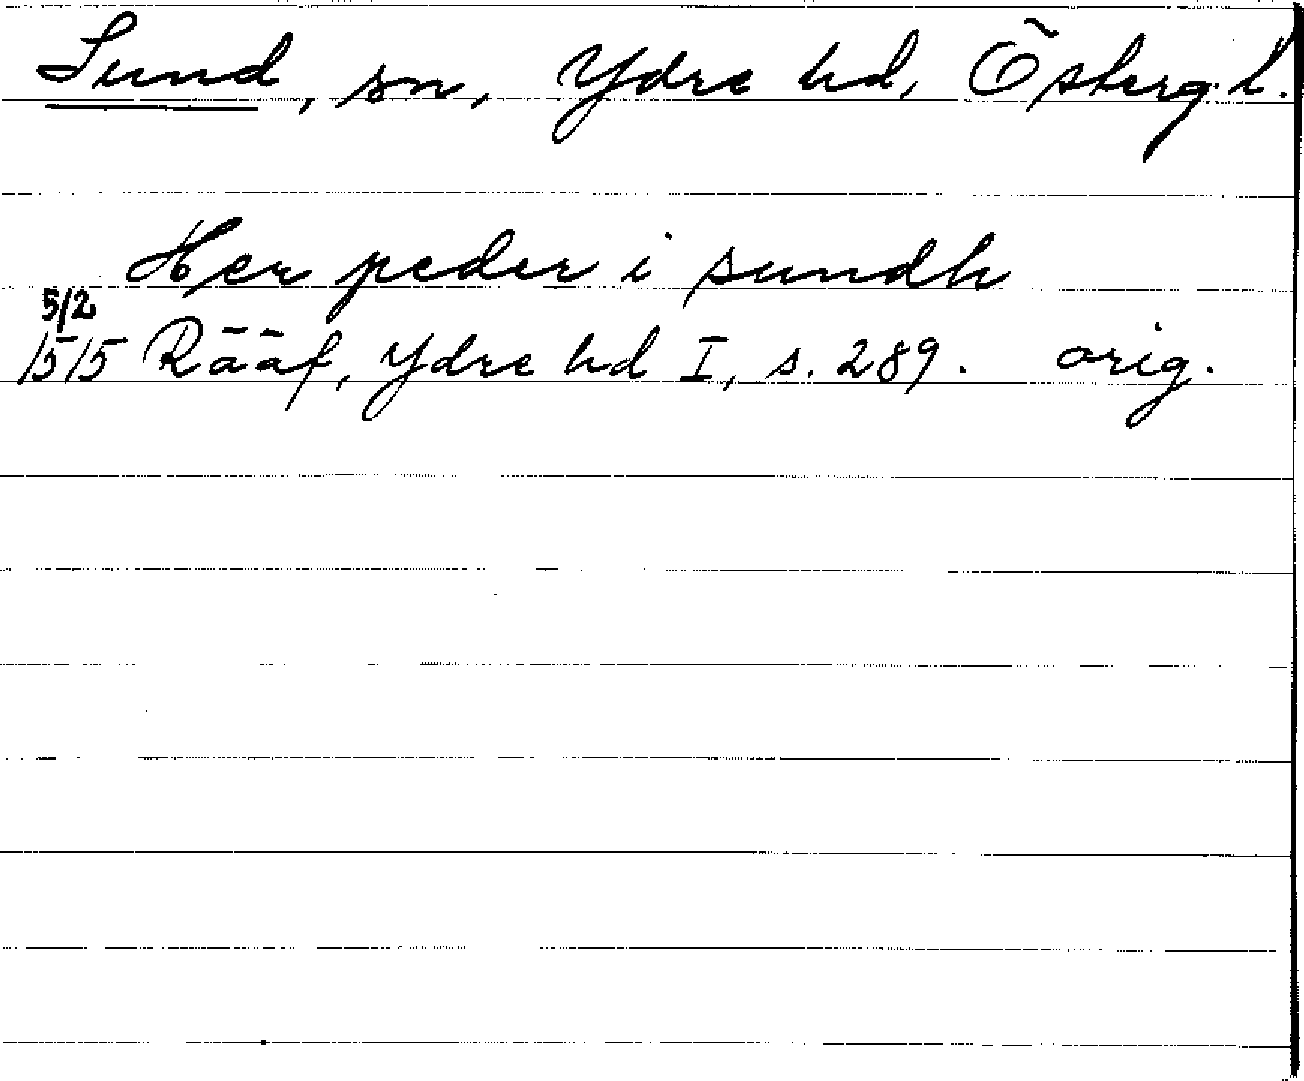 Sund, sn, Ydre hd, Österg. l.
Her peder i sundh
5/2
1515 Rääf, Ydre hd I, s. 289. orig.